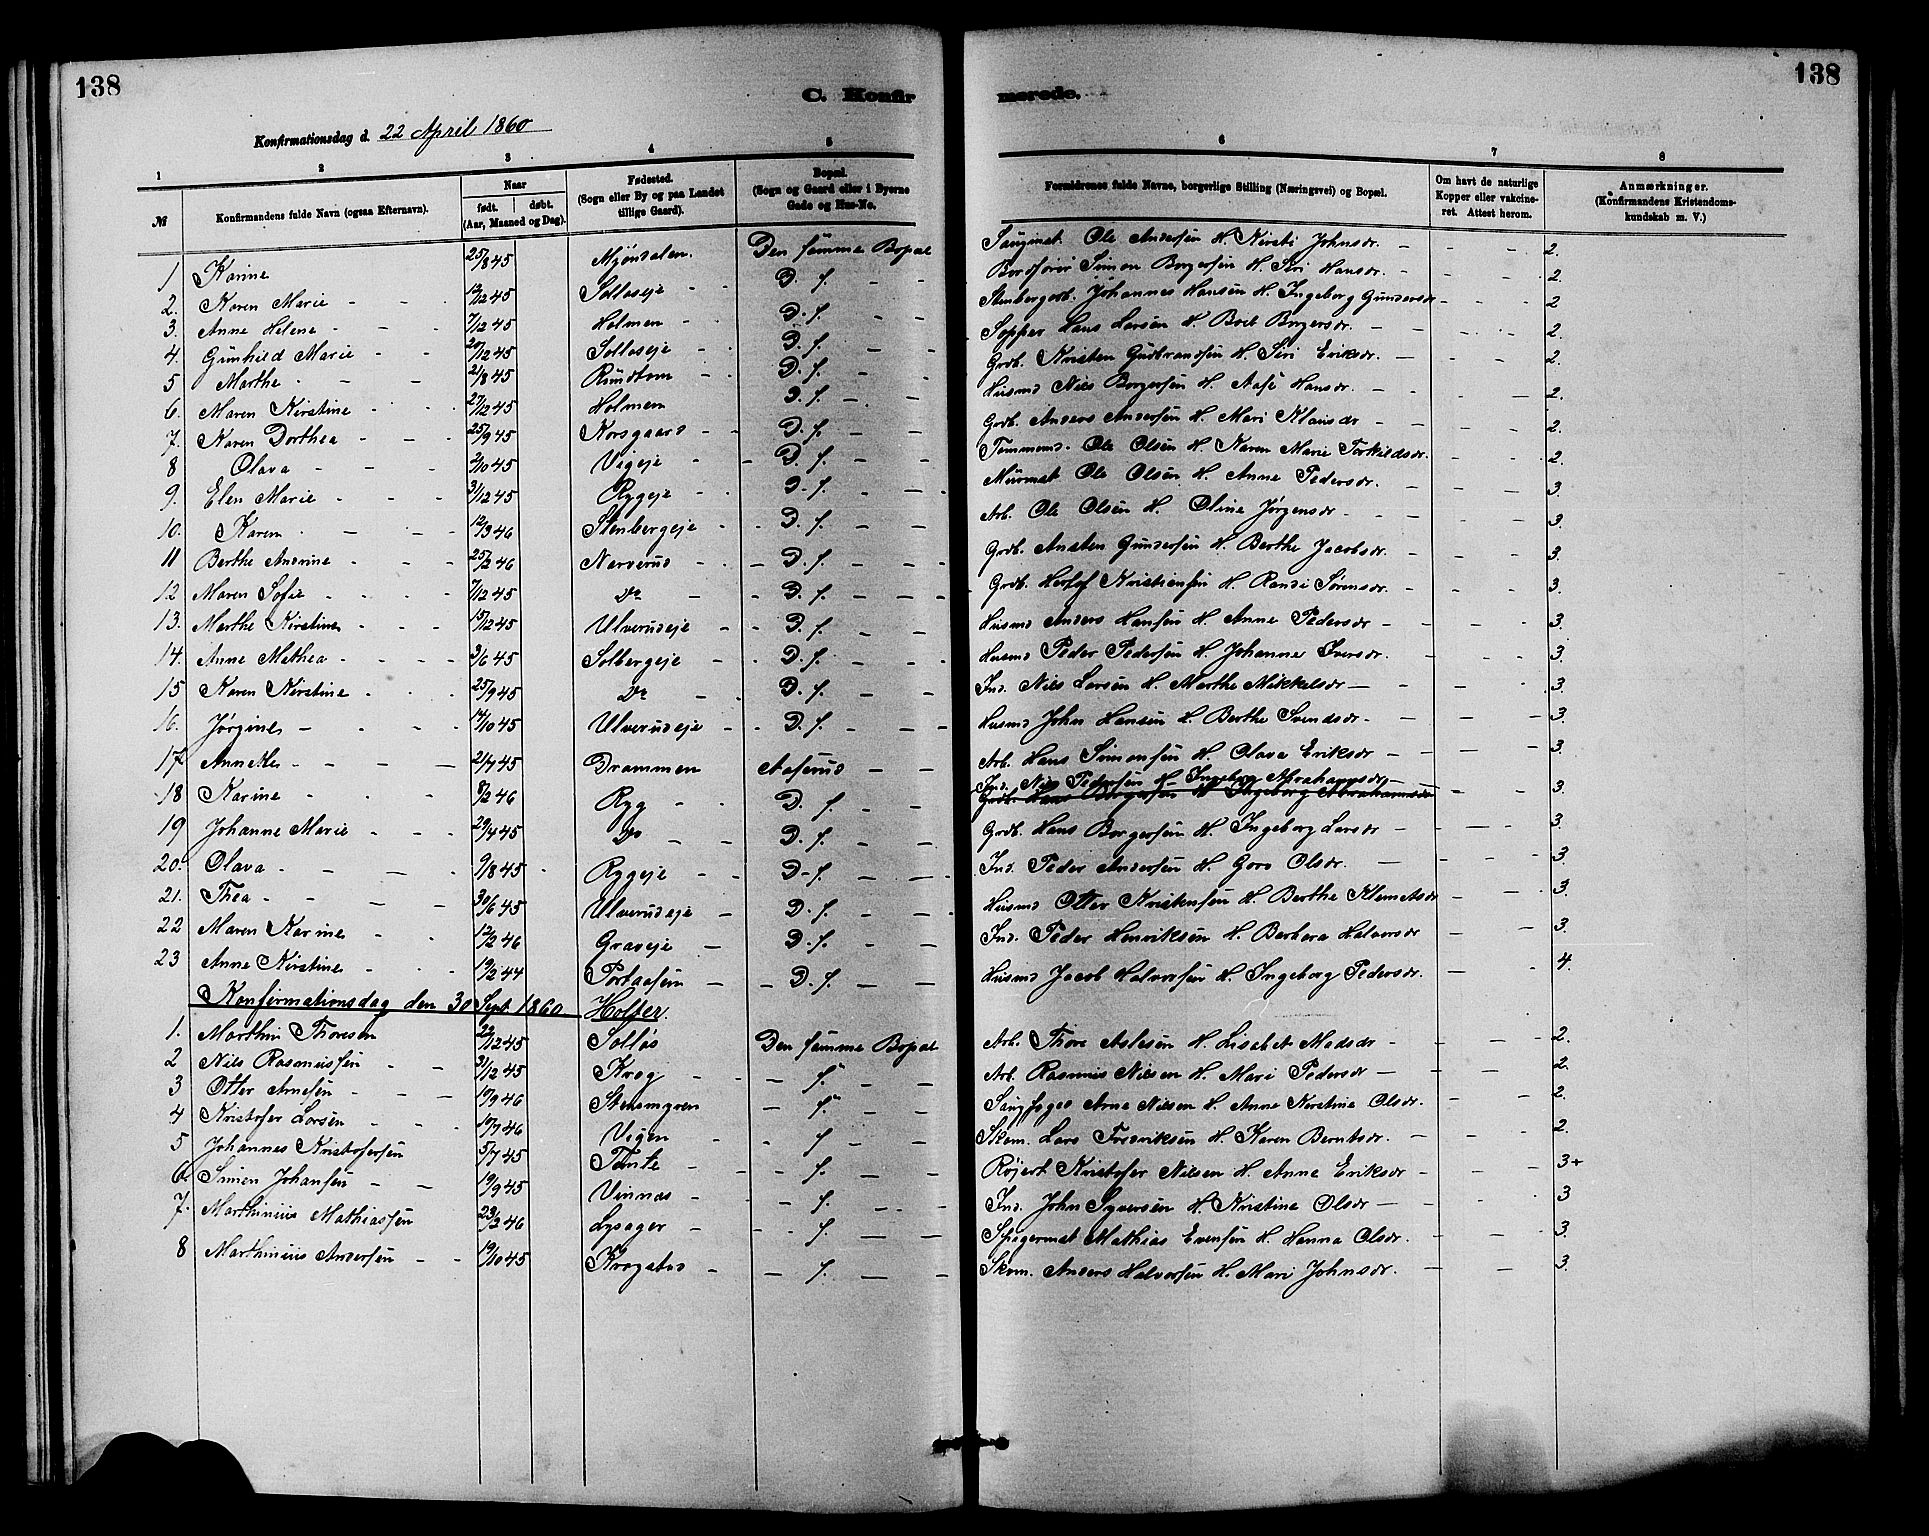 138
C. Konfir merede. 138
Konfirmationsdag d. 22 April 1860
1 2 3 4 5 6 7 8
№ Konfirmandens fulde Navn (ogsaa Efternavn). Naar født. døbt. (Aar, Maaned og Dag). Fødested. (Sogn eller By og paa Landet tillige Gaard). Bopæl. (Sogn og Gaard eller i Byerne Gade og Hus-No. Forældrenes fulde Navne, borgerlige Stilling (Næringsvei) og Bopæl. Om havt de naturlige Kopper eller vakcineret. Attest herom. Anmærkninger. (Konfirmandens Kristendomskundskab m. V.)
1 Karine 25/8 45 Mjøndalen. Den samme Bopæl Ole Andersen H. Kirsti Johnsdr. 2.
2. Karen Marie 45 Solloseje D. f. Simon Borgersen H. Siri Hansdr. 2.
3. Anne Helene 7/12 45 Holmen D. f. Johannes Hansen H. Ingeborg Gundersdr 2
4. Gunhild Marie 20/12 45 Solloseje D. f. Lars Larsen H. Borgersdr. 2.
5 Marthe 21/8 45 Rundtom D. f. Grdb. Kristen Gudbrandsen H. Siri Eriksdr. 2.
6. Maren Kirstine 27/12 45 Holmen D. f. Husmd Nils Borgersen H. Aase Hansdr. 2.
7. Karen Dorthea 25/9 45 Korsgaard D. f. Grdb. Anders Andersen H. Mari Klausdr 2.
8 Olava 2/10 45 Vigeje D. f. Tømmermd. Ole Olsen H. Karen Marie Torkildsdr. 2.
9. Elen Marie 31/12 45 Rygeje D. f. Murmst Ole Olsen H. Anne Pedersdr. 3.
10. Karen 12/3 46 Stenbergeje D. f. Arb. Ole Olsen H. Oline Jørgensdr 3.
11 Berthe Andrine 25/2 46 Narverud D. f. Grdb. Ansten Gundersen H. Berthe Jacobsdr. 3.
12 Maren Sofie 7/12 45 Do D. f. Grdb. Herlof Kristiansen H. Randi Sørensdr. 3.
13. Marthe Kirstine 15/12 45 Ulverudeje D. f. Husmd Anders Hansen H. Anne Pedersdr 3.
14. Anne Mathea 3/6 45 Solbergeje D. f. Husmd Peder Pedersen H. Johanne Iversdr. 3.
15 Karen Kirstine 25/9 45 Do D. f. Ind. Nils Larsen H. Marthe Mikkelsdr 3.
16. Jørgine 14/10 45 Ulverudeje D. f. Husmd John Hansen H. Berthe Svendsdr. 3.
17. Annette 21/7 45 Drammen Aaserud Arb. Hans Simonsen H. Olava Eriksdr 3.
18 Karine 8/2 46 Ryg D. f. Ind. Nils Pedersen H. Ingeborg Abrahamsdr 3.
Grdb. Hans Borgersen H. Ingeborg Abrahamsdr
19 Johanne Marie 29/4 45 Do D. f. Grdb Hans Borgersen H. Ingeborg Larsdr 3.
20. Olava 9/8 45 Rygeje D. f. Ind. Peder Andersen H. Goro Olsdr. 3.
21. Thea 30/6 45 Ulverudeje D. f. Husmd Otter Kristensen H. Berthe Klemetsdr 3.
22 Maren Karine 12/2 46 Graveje D. f. Ind. Peder Henriksen H. Berbera Halvorsdr 3.
23 Anne Kirstine 19/2 44 D. f. Husmd Jacob Halvorsen H. Ingeborg Pedersdr. 4.
Konfirmationsdag den 30 Sept 1860 Holter.
1. Marthin Thoresen 22/12 45 Solløs Den samme Bopæl Arb. Thore Aslesen H. Lisabet Madsdr 2.
2 Nils Rasmussen 31/12 45 Krog f. Arb. Rasmus Nilsen H. Mari Pedersdr 2.
3 Otter Arnesen 19/9 46 f. Arne Nilsen H. Anne Kirstine Olsdr. 2.
4 Kristofer Larsen 46 Vigen f. Skom. Lars Fredriksen H. Karen Berntsdr. 2.
5 Johannes Kristofersen 5/7 45 f. Kristofer Nilsen H. Anne Eriksdr 3+
6 Simen Johansen 19/9 45 Vinnas f. Ind. John Syversen H. Kristine Olsdr 3
7. Marthinius Mathiassen 23/3 46 Lysager f. Spigermst Mathias Evensen H. Hanna Olsdr. 3.
8 Marthinius Andersen 19/10 45 f. Skom. Anders Halvorsen H. Mari Johnsdr. 3.